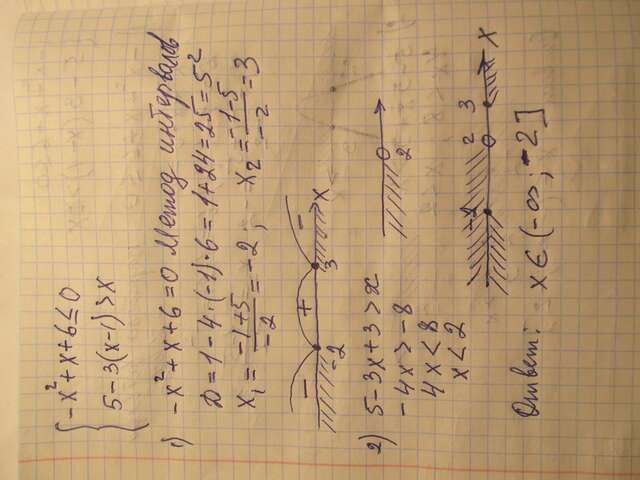 -x² + x + 6 ≤ 0
5 - 3(x-1) > x
1) -x² + x + 6 = 0 Метод интервалов
D = 1 - 4·(-1)·6 = 1 + 24 = 25 = 5²
x₁ = (-1+5)/(-2) = -2, x₂ = (-1-5)/(-2) = 3
- + -
-2 3 x
2) 5 - 3x + 3 > x
-4x > -8
4x < 8
x < 2
2
-2 2 3 x
Ответ: x ∈ (-∞; -2]